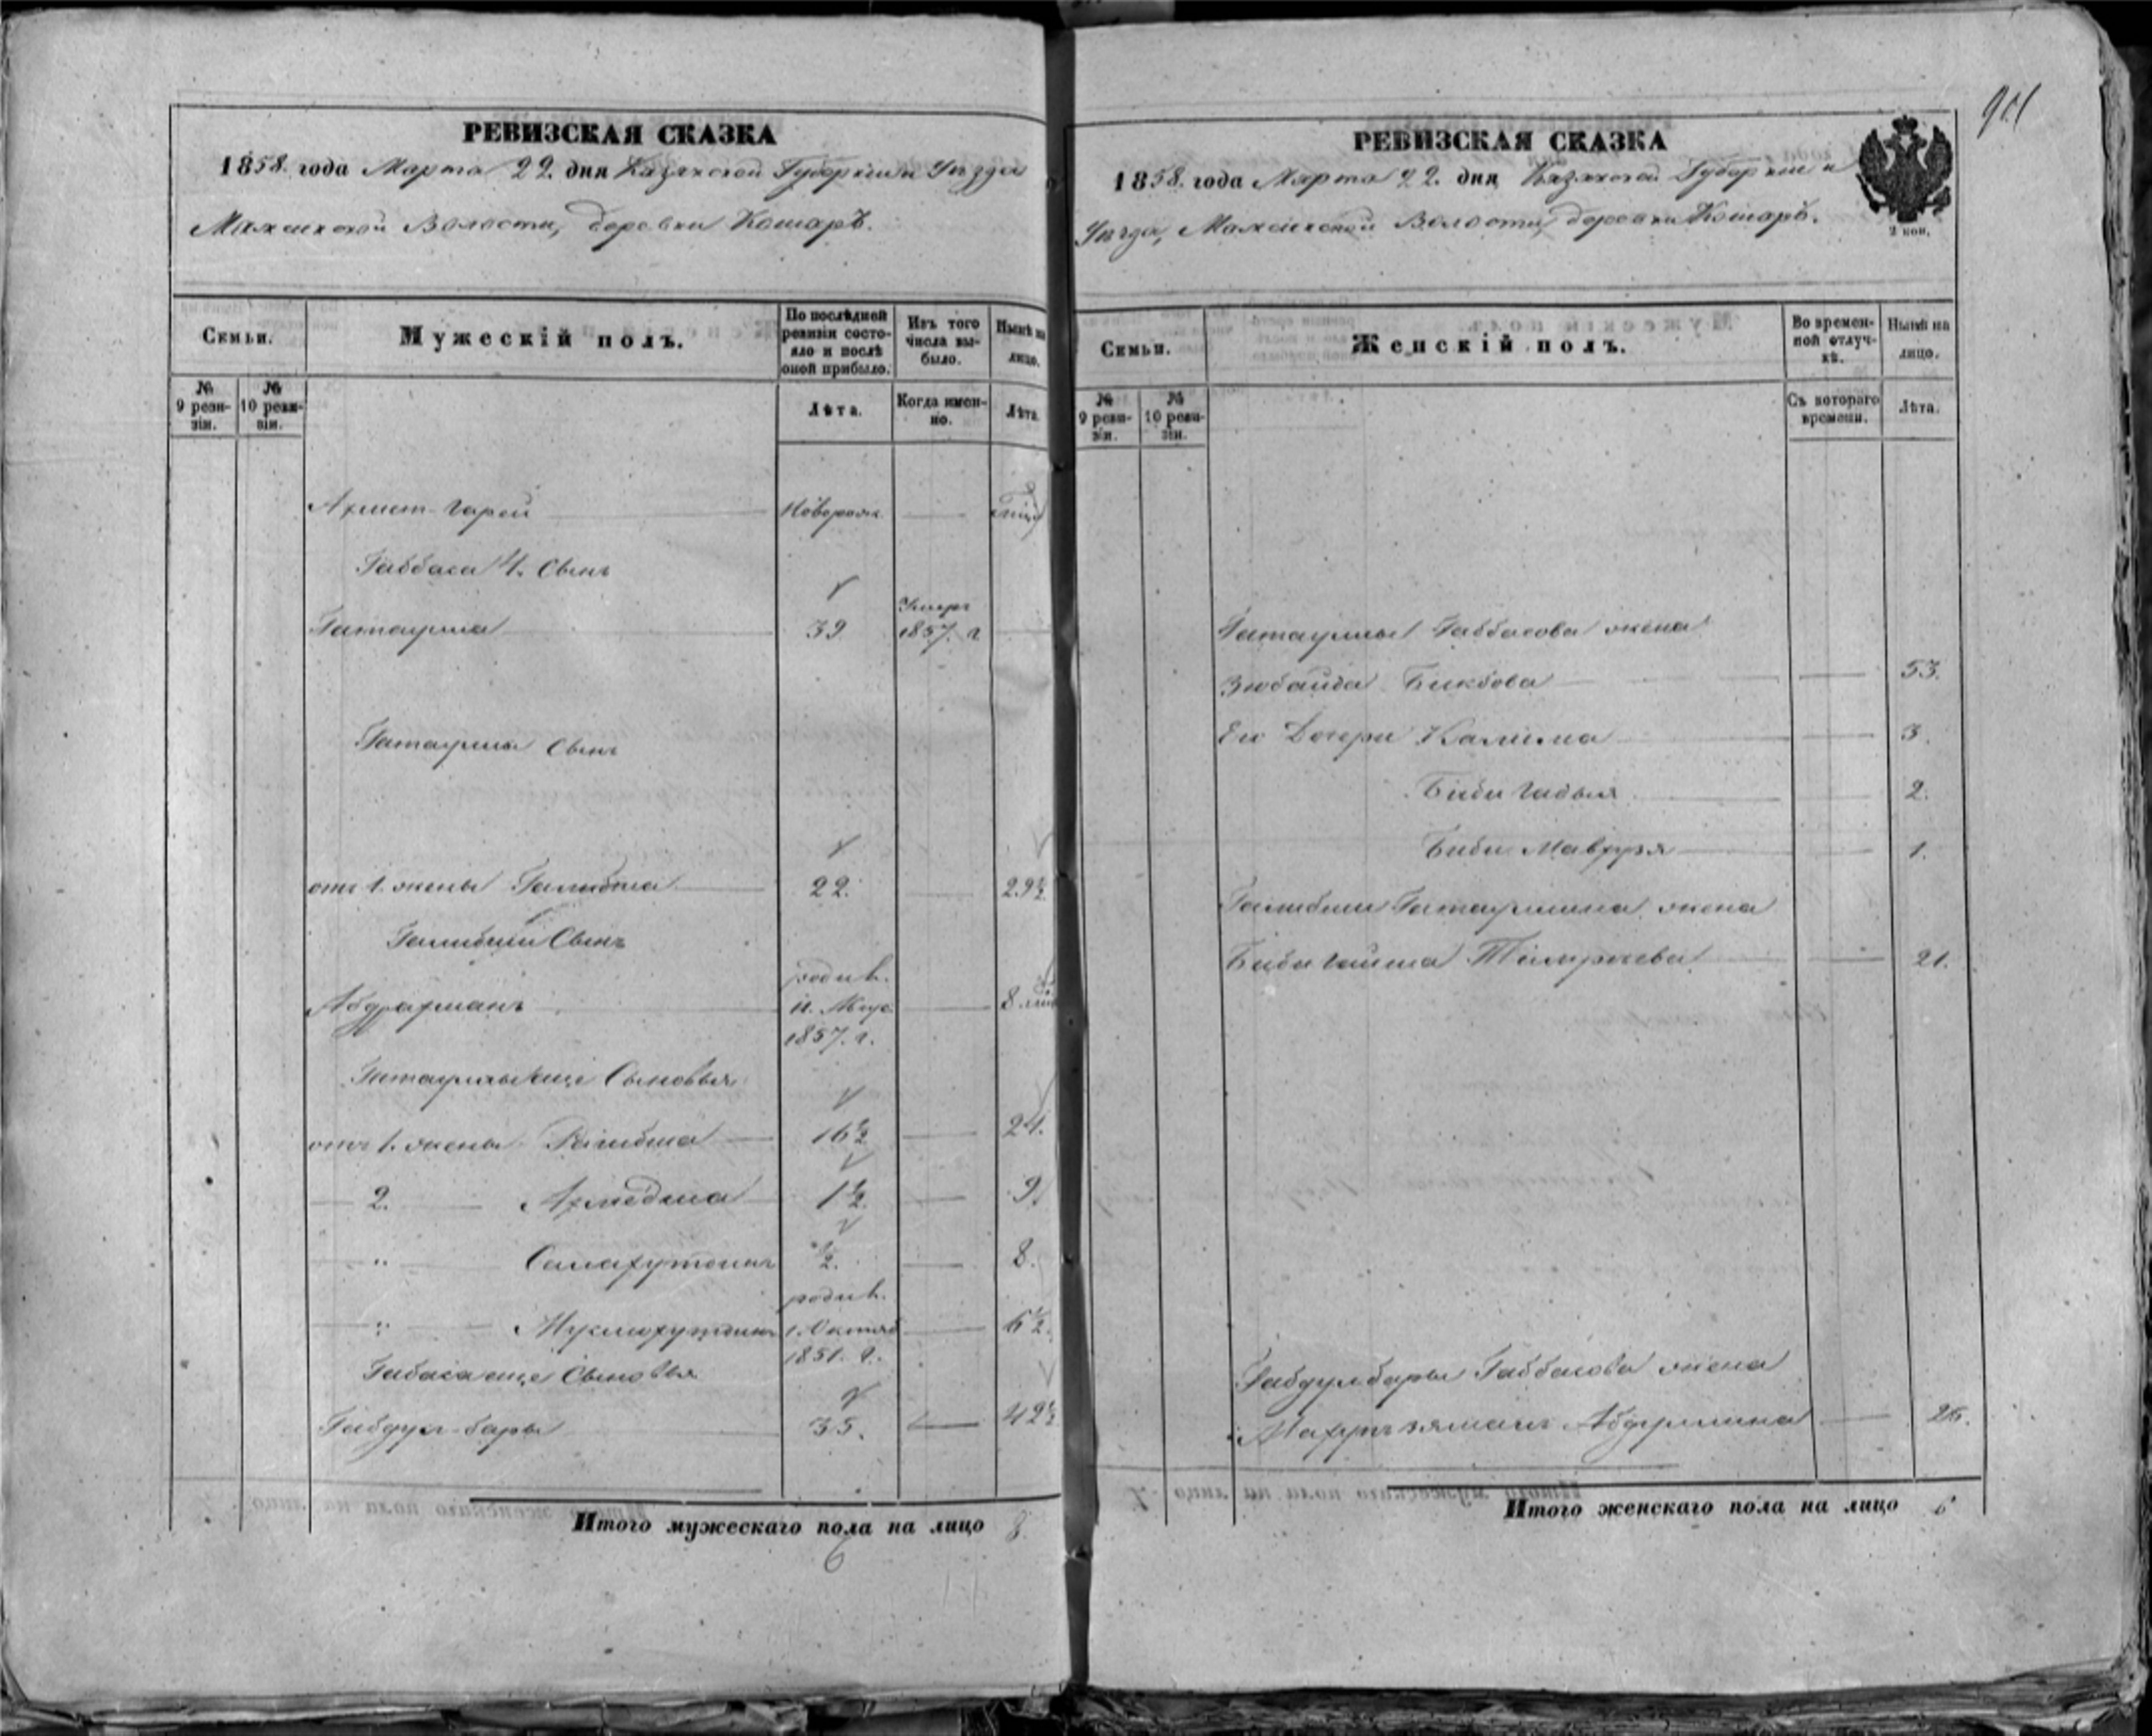 901
РЕВИЗСКАЯ СКАЗКА
1858. года Марта 22. дня Казанской Губернии и Уѣзда
Мамсинской Волости, деревни Кошаръ.
Семьи.
Мужескій полъ.
По послѣдней ревизіи состояло и послѣ оной прибыло.
Изъ того числа выбыло.
Нынѣ на лицо.
№ 9 ревизіи.
№ 10 ревизіи.
Лѣта.
Когда именно.
Лѣта.
Ахмет-Гарей Новорож.
Габбаса 4. Сынъ
Гатаулла 39 Умеръ 1857. г
Гатауллы Сынъ
отъ 1. жены Галибша 22. 29½
Галибши Сынъ
Абдрахманъ родив. 1857. г. 8
Гатауллы еще Сыновья
отъ 1. жены Рагибша 16½ 24.
2. Ахмедша 1½ 9.
" Салахутдинъ ½. 8.
" родив. 1. Октяб 1851. г. 6½.
Габаса еще Сыновья
Габдул-бары 35. 42½
Итого мужескаго пола на лицо 8.
6
РЕВИЗСКАЯ СКАЗКА
1858. года Марта 22. дня Казанской Губернии и
Уѣзда, Мамсинской Волости, деревни Кошаръ.
2 коп.
Семьи.
Женскій полъ.
Во временной отлучкѣ.
Нынѣ на лицо.
№ 9 ревизіи.
№ 10 ревизіи.
Съ котораго времени.
Лѣта.
Гатауллы Габбасова жена
Зюбайда Бикбова 53.
Его Дочери Калима 3.
Биби 2.
Биби Мавруза 1.
Галибши Гатауллина жена
Биби Гайша 21.
Габдулбары Габбасова жена
Махупъ замалъ Абдуллина 26.
Итого женскаго пола на лицо 6